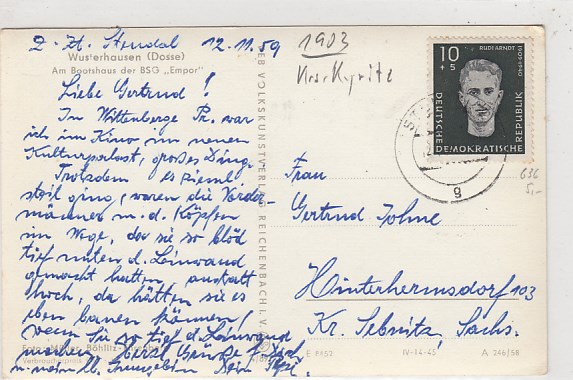 z. Zt. Stendal 12.11.59
Wusterhausen (Dosse)
Am Bootshaus der BSG „Empor"
Liebe Gertrud!
In Wittenberge Pr. war
ich im Kino im neuen
Kulturpalast, großes Ding.
Trotzdem es ziemlich
steil ging, waren die Vorder-
männer m. d. Köpfen
im Wege, da sie so blöd
tief unten d. Leinwand
gemacht hatten anstatt
hoch, da hätten sie es
eben bauen können!
wenn sie so tief d. Leinwand
machen. Herzl. Grüße
Dein
Foto
Böhlitz-
Verbraucherpreis
VEB VOLKSKUNSTVERLAG REICHENBACH i. V.
1903
Krs. Kyritz
10
+5
RUDI ARNDT
1909-1940
DEUTSCHE DEMOKRATISCHE REPUBLIK
g
636
5,-
Frau
Gertrud Johne
Hinterhermsdorf 103
Kr. Sebnitz, Sachs.
E 8452
IV-14-45
A 246/58